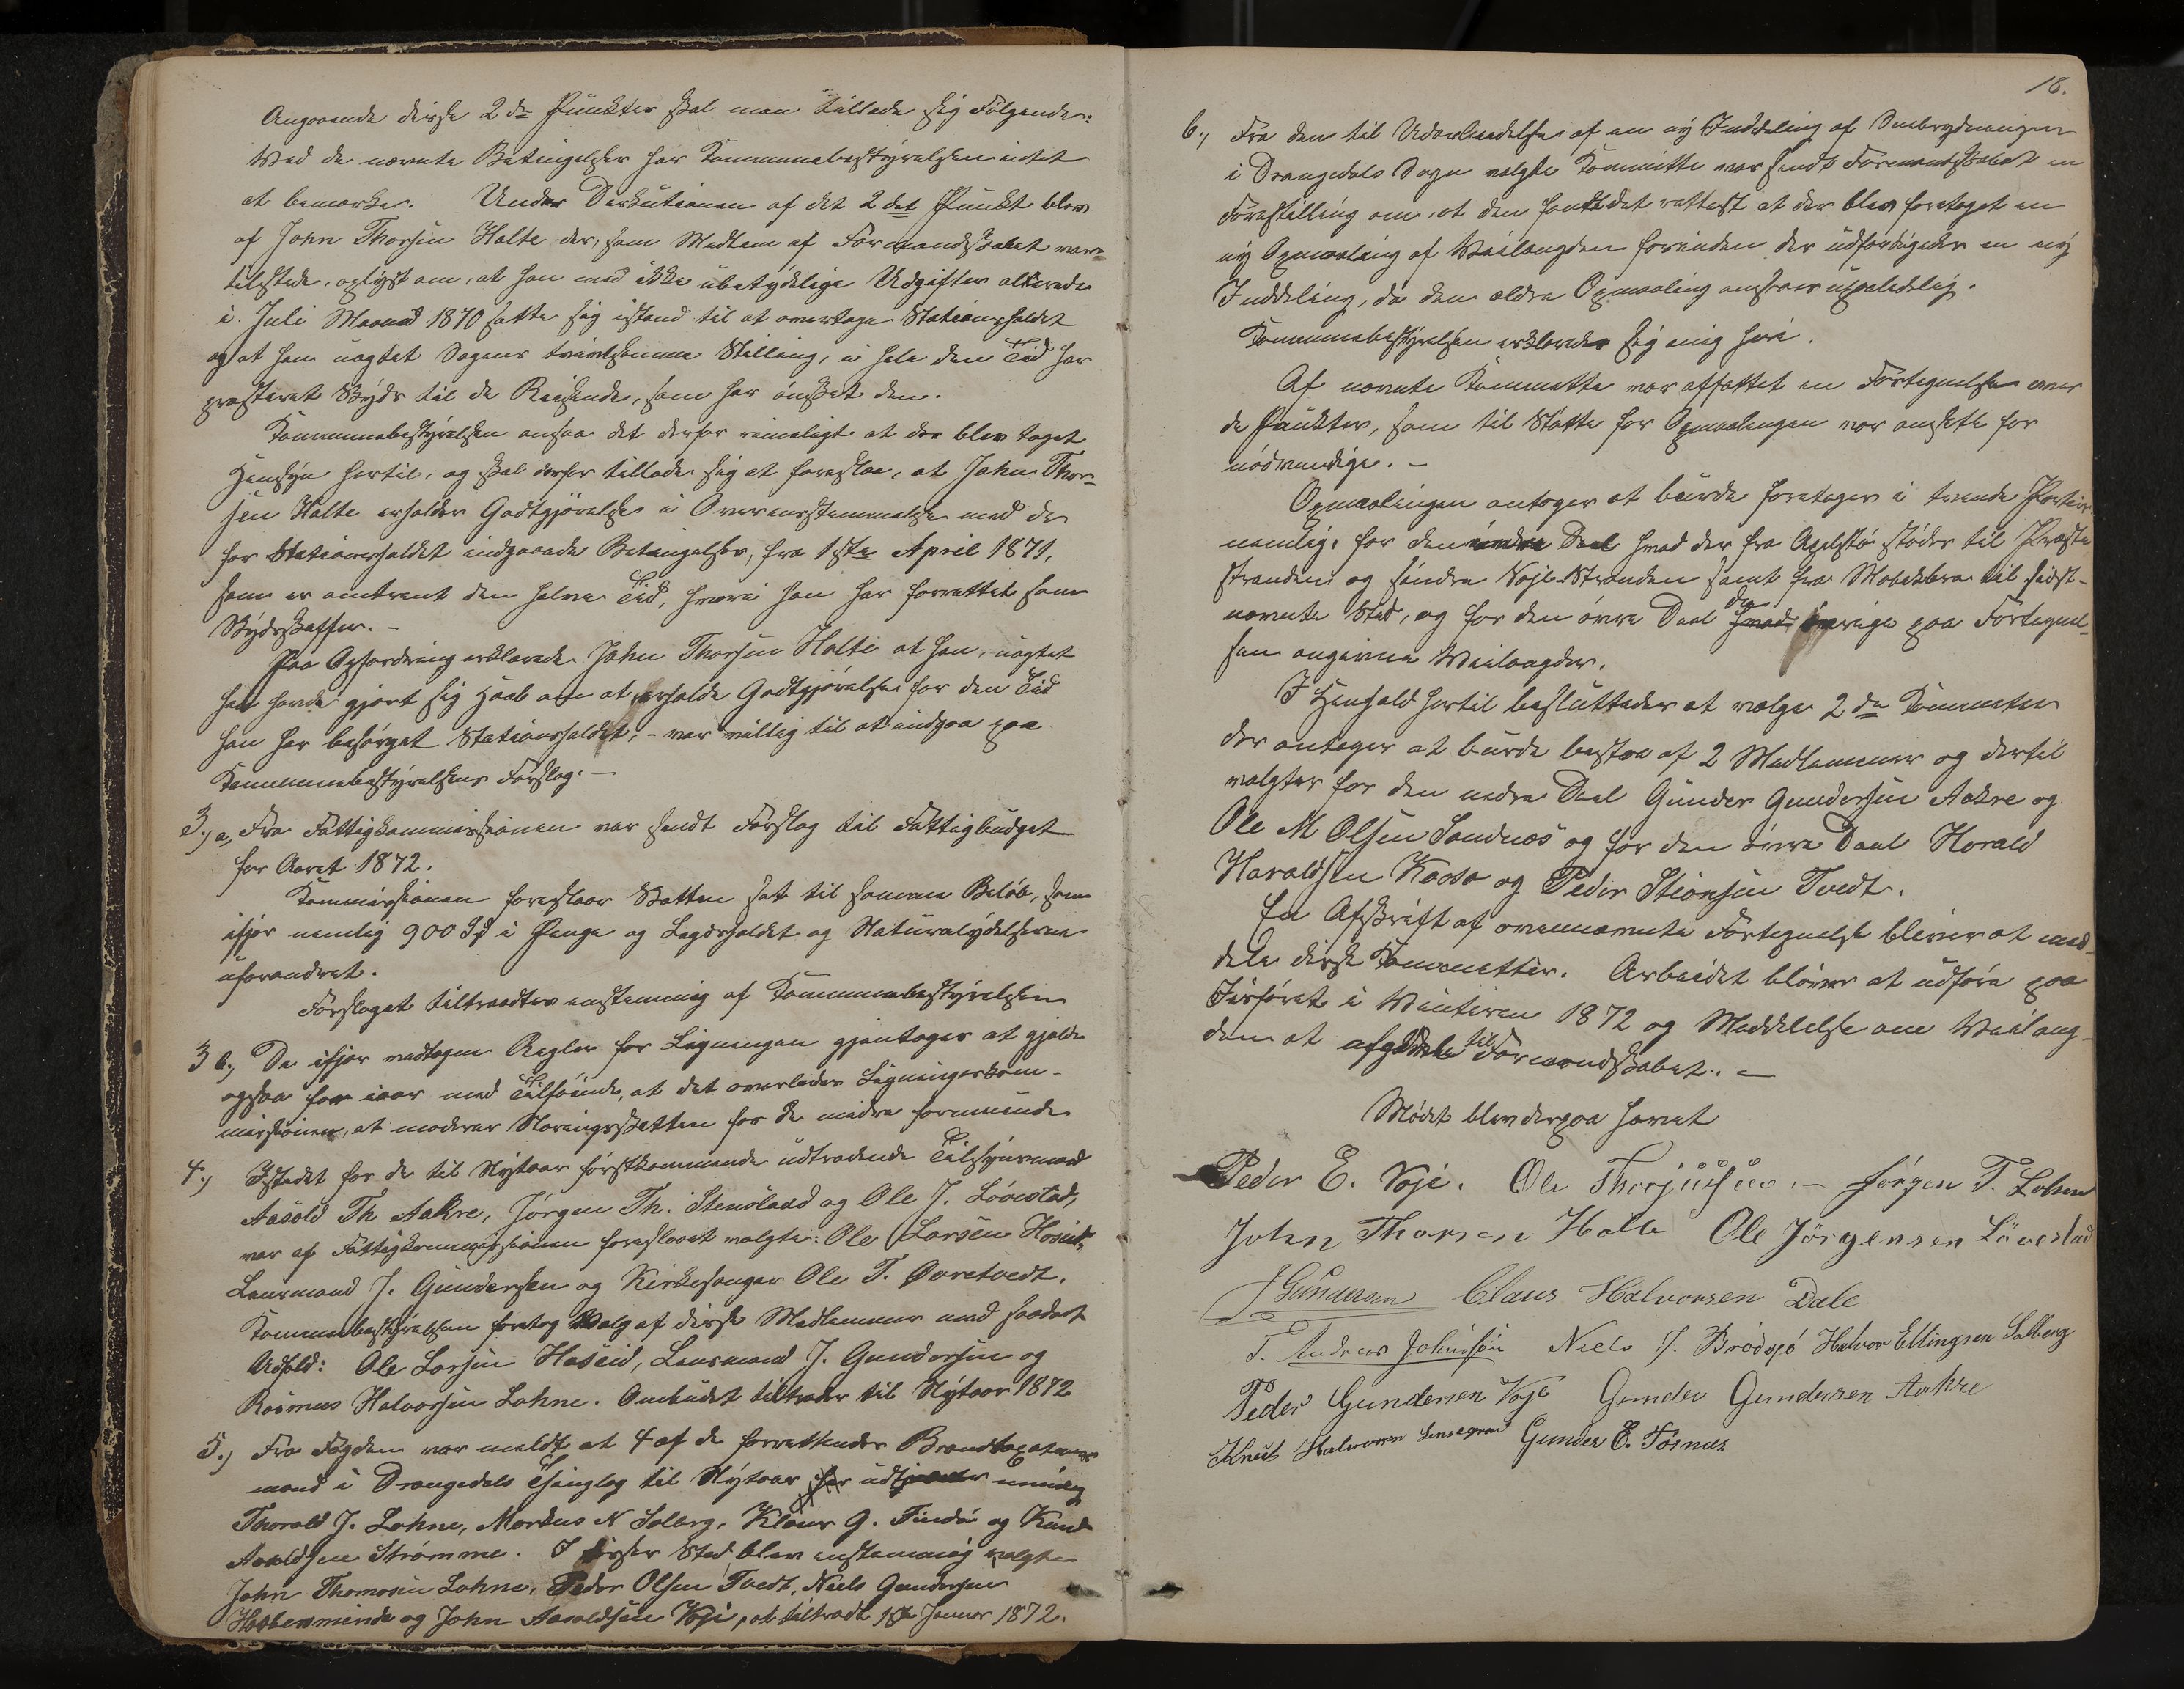 Angaaende disse 2de Punkter skal man tillade sig Følgende:
Ved de nævnte Betingelser har Kommunebestyrelsen intet
at bemærke. Under Diskutionen af det 2det Punkt blev
af John Thorsen Holte der, som Medlem af Formandskabet var
tilstede, oplyst om, at han med ikke ubetydelige Udgifter allerede
i Juli Maaned 1870 satte sig istand til at overtage Stationsholdet
og at han uagtet Sagens tvivlsomme Stilling, i hele den Tid har
præsteret Skyds til de Reisende, som har ønsket den.
Kommunebestyrelsen ansaa det derfor rimeligt at der blev taget
Hensyn hertil, og skal derfor tillade sig at foreslaa, at John Thor-
sen Holte erholder Godtgjørelse i Overensstemmelse med de
for Stationsholdet indgaaede Betingelser, fra 1ste April 1871,
som er omtrent den halve Tid, hvori han har forrettet som
Skydsskaffer. –
Paa Opfordring erklærede John Thorsen Holte at han, uagtet
han havde gjort sig Haab om at erholde Godtgjørelse for den Tid
han har besørget Stationsholdet, – var villig til at indgaa paa
Kommunebestyrelsens Forslag. –
3.) a, Fra Fattigkommissionen var sendt Forslag til Fattigbudget
for Aaret 1872.
Kommissionen foreslaar Skatten sat til samme Beløb, som
ifjor nemlig 900 Spd i Penge og Lægdsholdet og Naturalydelserne
uforandret.
Forslaget tiltraadtes enstemmig af Kommunebestyrelsen
3 b.) De ifjor vedtagne Regler for Ligningen gjentages at gjælde
ogsaa for iaar med Tilføiende, at det overlades Ligningskom-
missionen, at moderere Næringsskatten for de mindre formuende
4.) Istedet for de til Nytaar førstkommende udtrædende Tilsynsmænd
Aasold Th Aakre, Jørgen Th. Stensland og Ole J. Løvestad,
var af Fattigkommissionen foreslaaet valgte: Ole Larsen Hoseid,
Lensmand J. Gundersen og Kirkesanger Ole T. Øvretvedt.
Kommunebestyrelsen foretog Valg af disse Medlemmer med saadant
Udfald: Ole Larsen Hoseid, Lensmand J. Gundersen og
Rasmus Halvorsen Lohne. Ombudet tiltrædes til Nytaar 1872
5.) Fra Fogden var meldt at 4 af de forrettende Brandtaxations
mænd i Drangedals Thinglag til Nytaar har udtjent nemlig
Thorald J. Lohne, Markus N Solberg, Klaus G. Findø og Knud
Aasoldsen Strømme. I disses Sted blev enstemmig valgte
John Thomasen Lohne, Peder Olsen Tvedt, Niels Gundersen
og John Aasoldsen Voje, at tiltræde 1ste Januar 1872.
18.
6.) Fra den til Udarbeidelse af en ny Inddeling af
i Drangedals Sogn valgte Kommitte var sendt Formandskabet en
Forestilling om, at den fandt det rettest at der blev foretaget en
ny Opmaaling af Veilængden forinden der udfærdigedes en ny
Inddeling, da den ældre Opmaaling ansaaes upaalidelig.
Kommunebestyrelsen erklærede sig enig heri.
Af nævnte Kommitte var affattet en Fortegnelse over
de Punkter, som til Støtte for Opmaalingen var anseet for
nødvendige. –
Opmaalingen antoges at burde foretages i tvende Partier
nemlig, for den nedre Deel hvad der fra støder til Præste
stranden og søndre Voje-Stranden samt fra til sidst-
nævnte Sted, og for den øvre Deel de øvrige paa Fortegnel-
sen angivne Veilængder.
I Henhold hertil besluttedes at vælge 2de Kommitter
der antoges at burde bestaa af 2 Medlemmer og dertil
valgtes for den nedre Deel Gunder Gundersen Aakre og
Ole M Olsen Sandnæs og for den øvre Deel Harald
Haraldsen Kaasa og Peder Stiansen Tvedt.
En Afskrift af ovennævnte Fortegnelse bliver at med-
dele disse Kommitteer. Arbeidet bliver at udføre paa
Isføret i Vinteren 1872 og Meddelelse om Veilæng-
den at afgive til Formandskabet. –
Mødet blev derpaa hævet
Peder E. Voje. Ole Thorjussen. – Jørgen T. Lohne
John Thorsen Holte Ole Jørgensen Løvestad
JGundersen Claus Halvorsen Dale
T. Andreas Johnsen Niels J. Brødsjø Halvor Ellingsen Solberg
Peder Gundersen Voje Gunder Gundersen Aakre
Knut Halvorsen Gunder E. Fosnæs